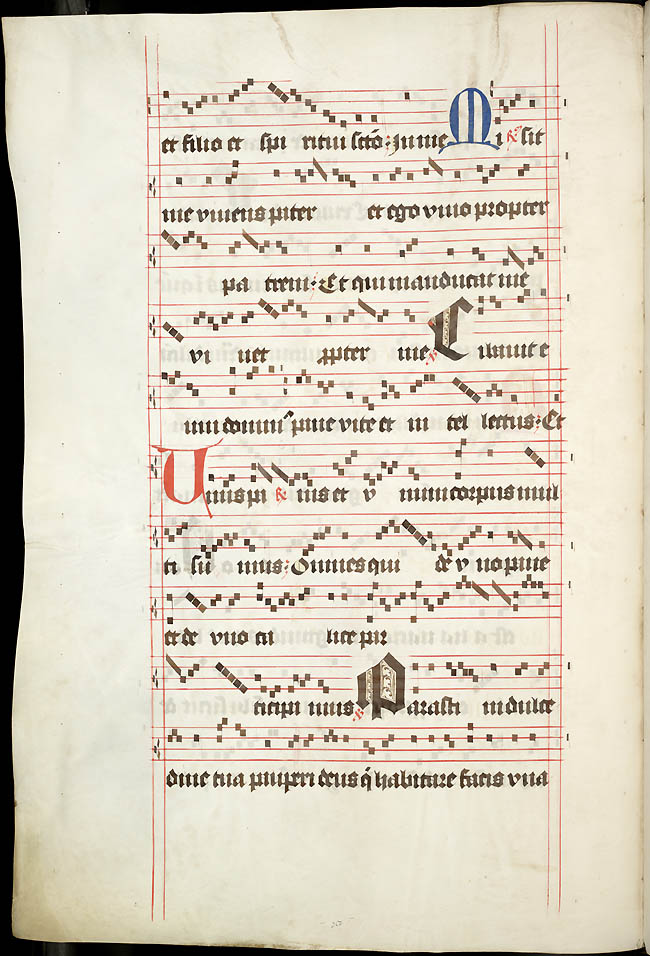 et filio et spi ritui scto: In me Mi ℟ sit
me vivens pater et ego vivo propter
pa trem: Et qui manducat me
vi vet ppter me ℣ Cibavit e
um domin' pane vite et in tel lectus: Et
Unus pa ℟ nis et v num corpus mul
ti su mus: Omnes qui de v no pane
et de vno ca lice par
ticipa mus ℣ Parasti in dulce
dine tua pauperi deus q̄ habitare facis vna